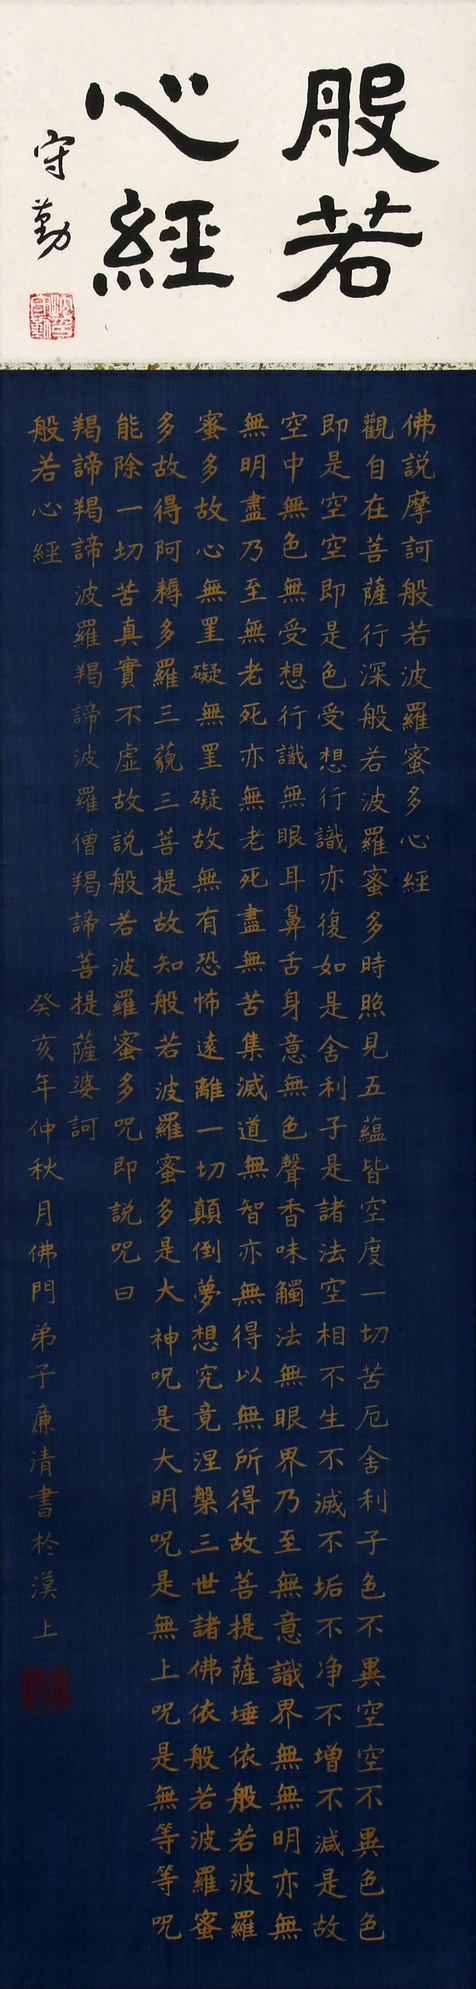 般若
心經
守勤
佛説摩訶般若波羅蜜多心經
觀自在菩薩行深般若波羅蜜多時照見五蘊皆空度一切苦厄舍利子色不異空空不異色色
即是空空即是色受想行識亦復如是舍利子是諸法空相不生不滅不垢不净不增不減是故
空中無色無受想行識無眼耳鼻舌身意無色聲香味觸法無眼界乃至無意識界無無明亦無
無明盡乃至無老死亦無老死盡無苦集滅道無智亦無得以無所得故菩提薩埵依般若波羅
蜜多故心無罣礙無罣礙故無有恐怖遠離一切顛倒夢想究竟涅槃三世諸佛依般若波羅蜜
多故得阿耨多羅三藐三菩提故知般若波羅蜜多是大神呪是大明呪是無上呪是無等等呪
能除一切苦真實不虛故説般若波羅蜜多呪即説呪曰
羯諦羯諦波羅羯諦波羅僧羯諦菩提薩婆訶
般若心經
癸亥年仲秋月佛門弟子廉清書於漠上